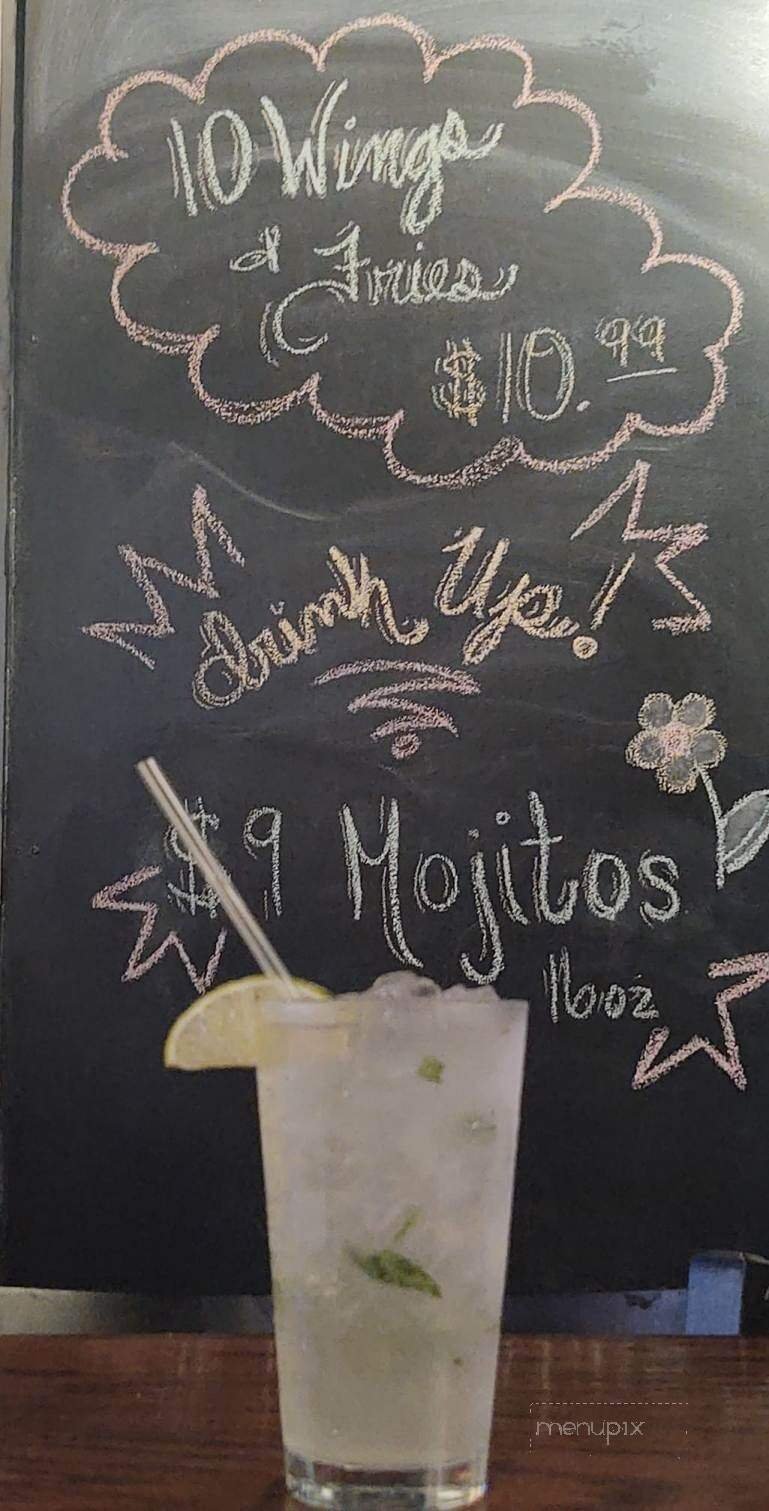 10 Wings
& Fries
$10.99
Drink Up!
$9 Mojitos
16oz
menupix